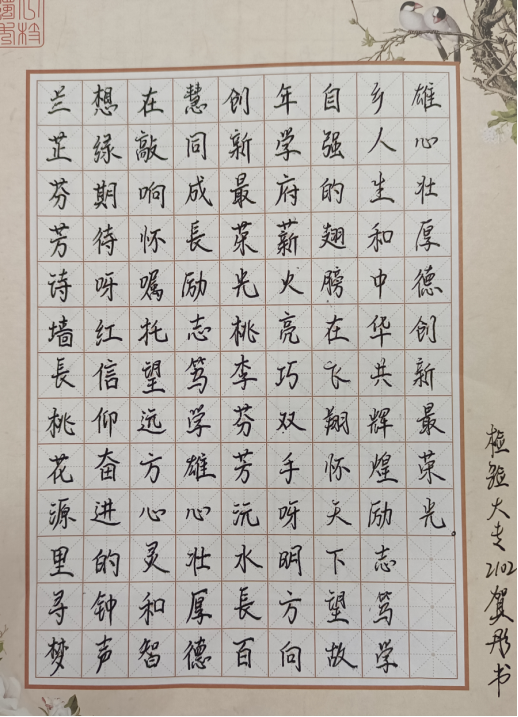 兰芷芬芳诗墙長桃花源里寻梦
想绿期待呀红信仰奋进的钟声
在敲响怀嘱托望远方心灵和智
慧同成長励志笃学雄心壮厚德
创新最荣光桃李芬芳沅水長百
年学府薪火亮巧双手呀明方向
自强的翅膀在飞翔怀天下望故
乡人生和中华共辉煌励志笃学
雄心壮厚德创新最荣光。
检验大专2102贺彤书